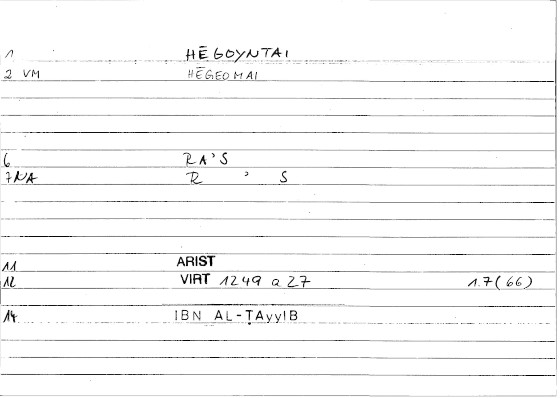 1 HĒGOYNTAI
2 VM HĒGEOMAI
6 RA'S
7NA R ' S
11 ARIST
12 VIRT 1249 a 27 1.7(66)
14 IBN AL-ṬAyyIB